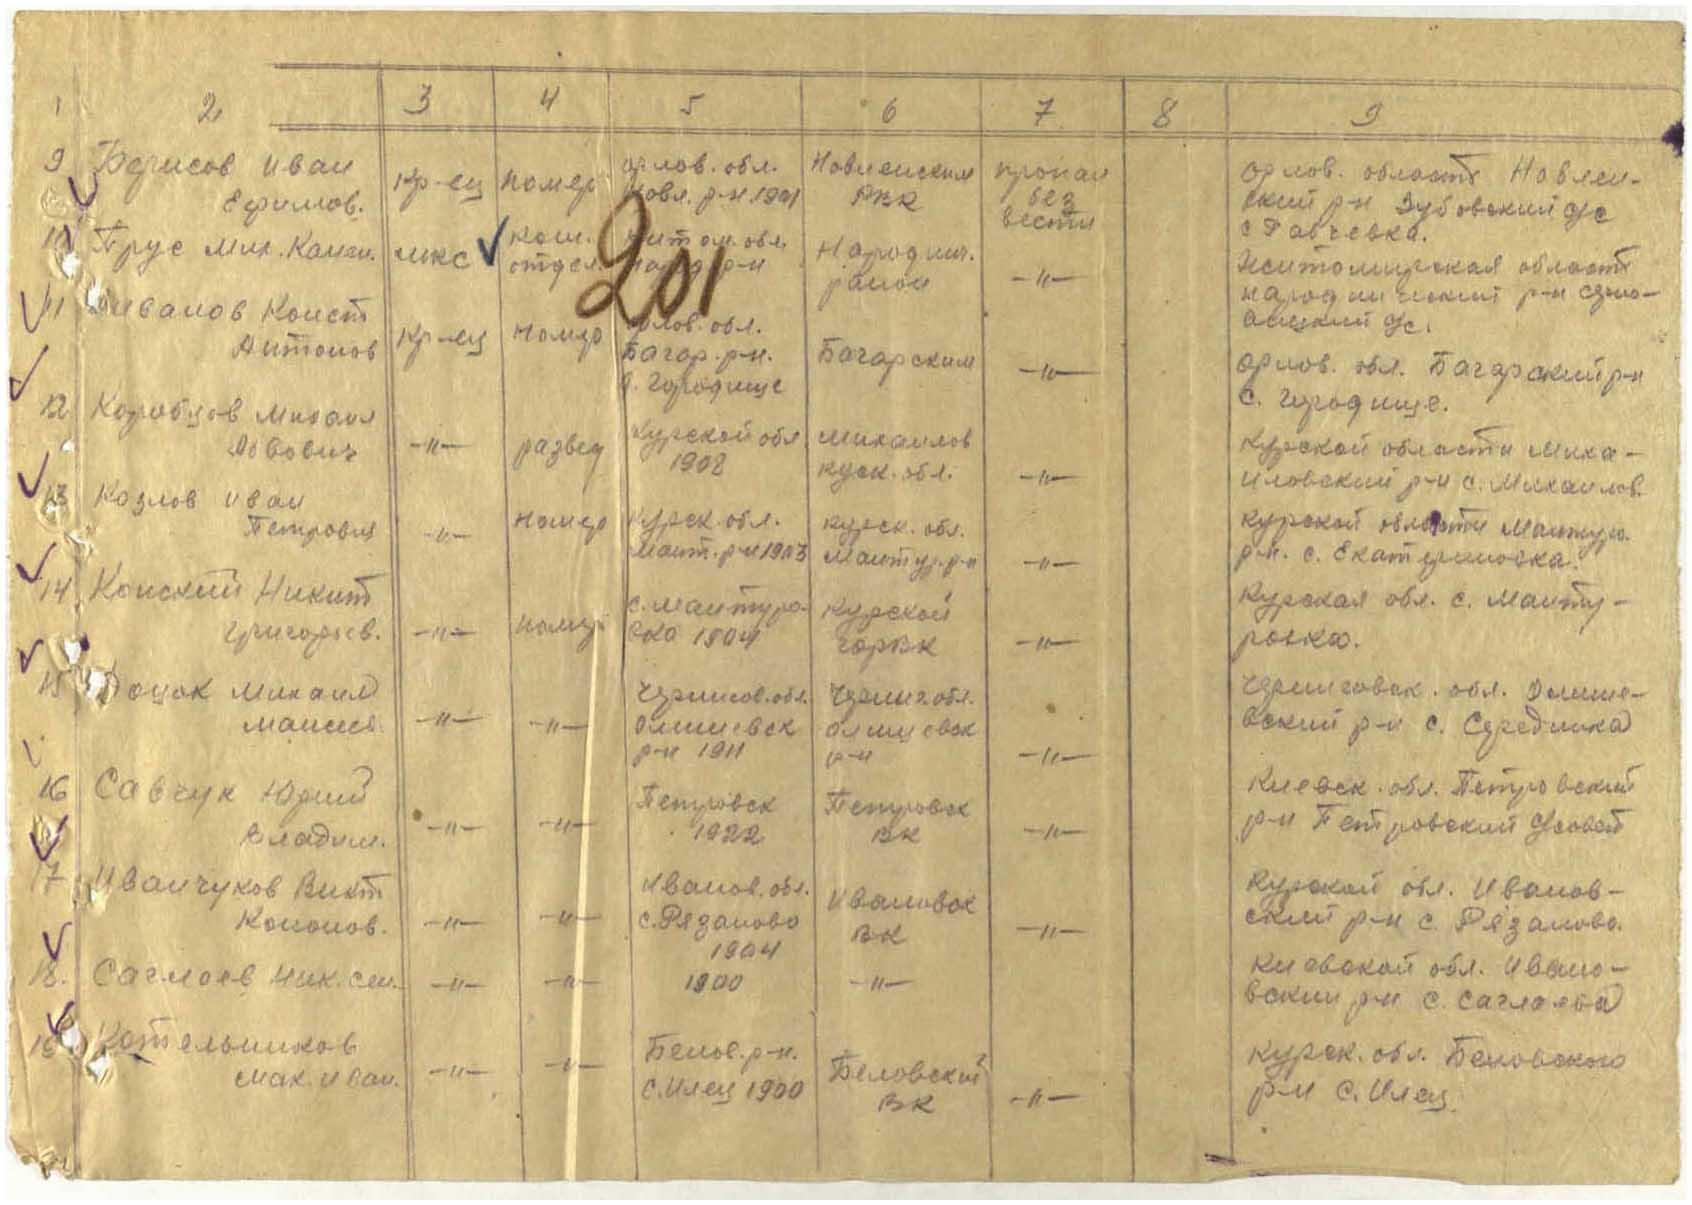 1 2 3 4 5 6 7 8 9
9 Борисов Иван кр-ец номер орлов. обл. Новлеиским пропал орлов. область Новлеи-
Ефимов. р-н 1901 РВК без ский р-н Зубовский с/с
вести
10 Прус Мих. мкс ком. обл. Народич. Житомирская область
отдел. р-н район -"- народический р-н
201
11 Иванов Конст кр-ец номер орлов. обл. с/с.
Антонов Багар. р-н. Багарским -"- орлов. обл. Багарский р-н
д. Городище с. Городище.
12 Коробцов Михаил -"- развед Курской обл Михаилов -"- Курской области Миха-
1902 куск. обл. иловский р-н с. Михаилов.
13 Козлов Иван номер Курск. обл. курск. обл. Курской области Мантур.
Петрович -"- Мант. р-н 1903 Мантур. р-н -"- р-н. с. Екатериновка.
14 Конский Никит -"- номер с. Мантуро- Курской -"- Курская обл. с. Манту-
Григорьев. вка 1904 горвк ровка.
15 Михаил -"- -"- Чернигов. обл. Черниг. обл. Черниговск. обл. Олише-
Моисеев Олишевск Олишевск вский р-н с. Середника
р-н 1911 р-н -"-
16 Савчук Юрий -"- -"- Петровск Петровск -"- Киевск. обл. Петровский
Владим. 1922 ВК р-н Петровский с/совет
17 Иванчуков Викт Иванов. обл. Ивановск Курской обл. Иванов-
Кононов. -"- -"- с. Рязаново ВК -"- ский р-н с. Рязаново.
1904
18. Саглоев Ник. Сем. -"- -"- 1900 -"- Киевской обл. Ивано-
вский р-н с. Саглаева
19 Котельников -"- -"- Белов. р-н. Беловский курск. обл. Беловского
Мак. Иван. с. Илец 1900 ВК -"- р-н с. Илец.